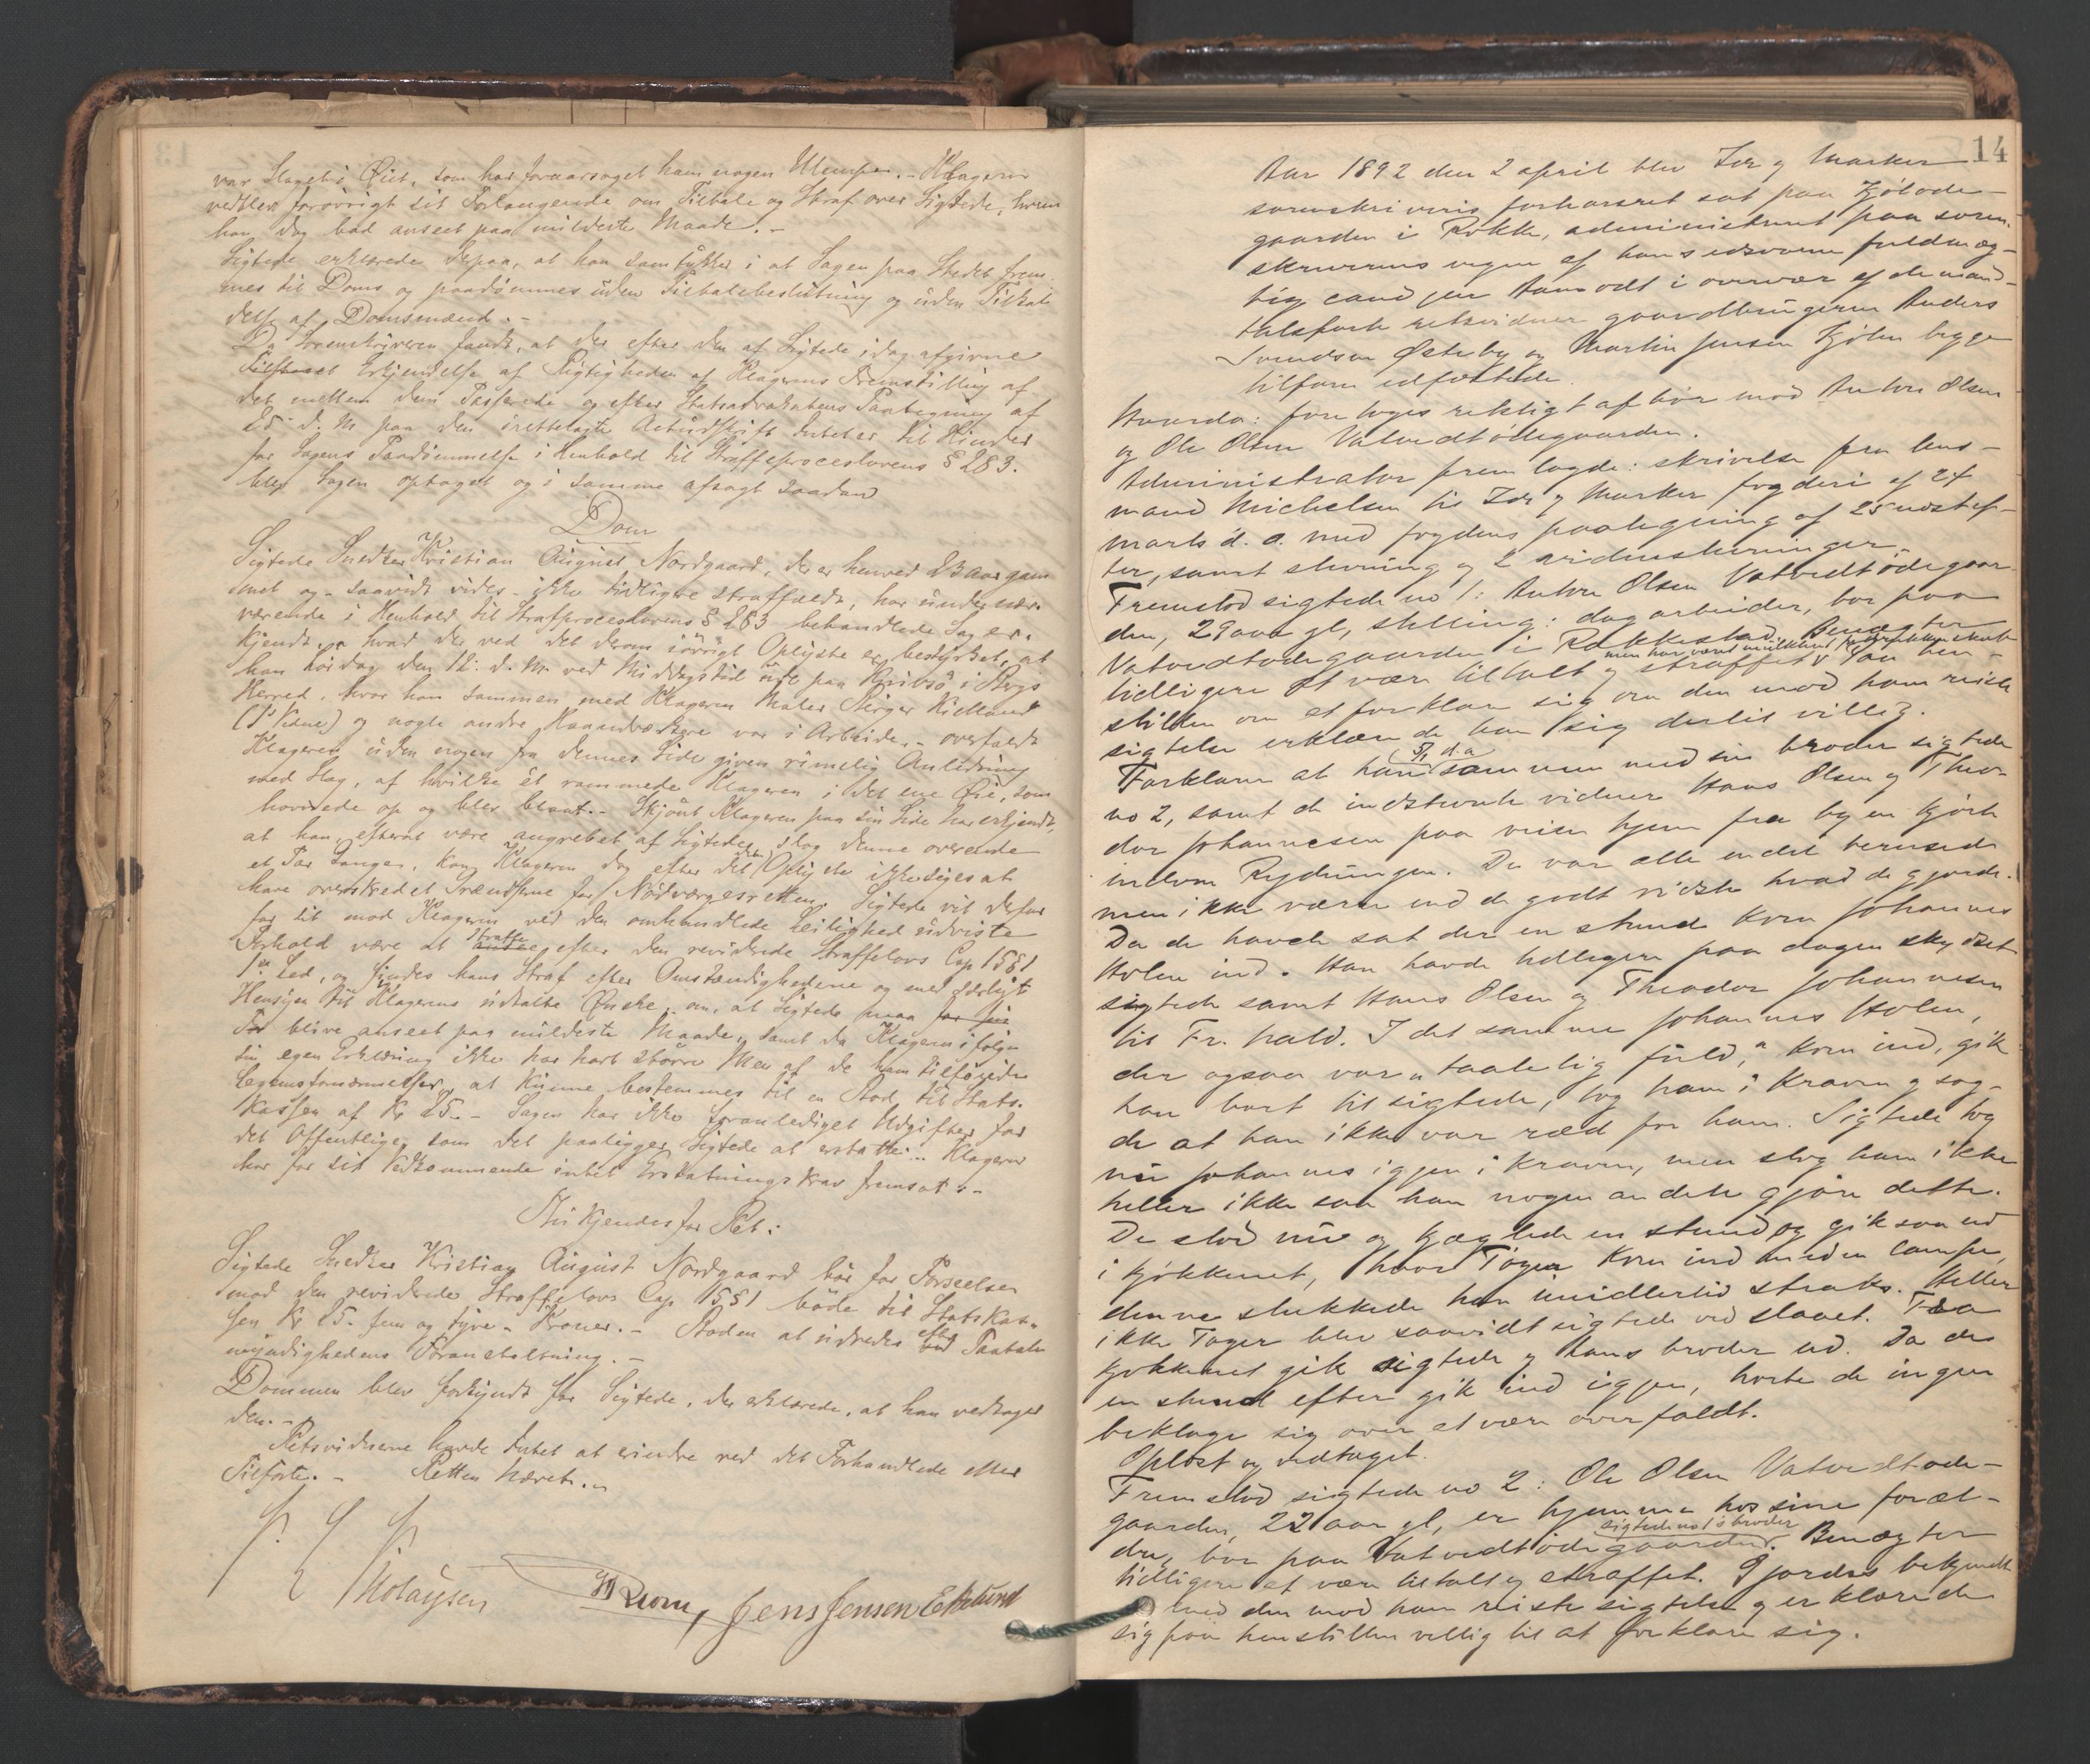 var Slaget i Øiet, som har foraarsaget ham nogen Ulempe. - Klageren
vedblev forøvrigt sit Forlangende om Tiltale og Straf over Sigtede, hvem
han dog bad anseet paa mildeste Maade. -
Sigtede erklærede derpaa, at han samtykker i at Sagen paa Stedet frem-
mes til Doms og paadømmes uden Tiltalebeslutning og uden Tilkal-
delse af Domsmænd. -
Da Sorenskriveren fandt, at der efter den af Sigtede idag afgivne
Erkjendelse af Rigtigheden af Klagerens Fremstilling af
det mellem dem Passerede og efter Statsadvokatens Paategning af
25 d. M. paa den irettelagte Actudskrift Intet er til Hinder
for Sagens Paadømmelse i Henhold til Straffeproceslovens § 283.
blev Sagen optaget og i samme afsagt saadan
Dom
Sigtede Snedker Kristian August Nordgaard, der er henved 23 aar gam-
mel og - saavidt vides - ikke tidligere straffældt, har under nær-
værende i Henhold til Strafproceslovens § 283 behandlede Sag er-
kjendt, hvad der ved det derom iøvrigt Oplyste er bestyrket, at
han Lørdag den 12. d. M. ved Middagstid ude paa i Bergs
Herred, hvor han sammen med Klageren Maler Birger Kielland
(1ste Vidne) og nogle andre Haandværkere var i Arbeide, - overfaldt
Klageren uden nogen fra dennes Side given rimelig Anledning
med Slag, af hvilke et rammede Klageren i det ene Øie, som
hovnede op og blev blaat. - Skjønt Klageren paa sin Side har erkjendt,
at han, efterat være angrebet af Sigtede, slog denne overende
et Par Gange, kan Klageren dog efter det Oplyste ikke siges at
have overskredet Grændserne for Nødværgesretten. Sigtede vil derfor
for sit mod Klageren ved den omhandlede Leilighed udviste
Forhold være at straffe efter den reviderede Straffelovs Cap 15 § 1
1ste Led, og findes hans Straf efter Omstændighederne og med særligt
Hensyn til Klagerens udtalte Ønske om, at Sigtede maa
blive anseet paa mildeste Maade, samt da Klageren i følge
sin egen Erklæring ikke har havt større Men af de ham tilføiede
Legemsfornærmelser, at kunne bestemmes til en Bod til Stats-
kassen af Kr 25. - Sagen har ikke foranlediget Udgifter for
det Offentlige, som det paaligger Sigtede at erstatte. - Klageren
har for sit Vedkommende intet Erstatningskrav fremsat. -
Thi kjendes for Ret:
Sigtede Snedker Kristian August Nordgaard bør for Forseelse
mod den reviderede Straffelovs Cap 15 § 1 bøde til Statskas-
sen Kr 25 - fem og tyve - Kroner. - Boden at udredes efter Paatale-
myndighedens Foranstaltning. -
Dommen blev forkyndt for Sigtede, der erklærede, at han vedtager
den. -
Retsvidnerne havde Intet at erindre ved det Forhandlede eller
Tilførte. - Retten hævet. -
Jens Jensen Eklund
14
Aar 1892 den 2 april blev Ide og Marker
sorenskriveris forhørsret sat paa Kjøløde-
gaarden i Rokke, administreret paa soren-
skriverens vegne af hans edsvorne fuldmæg-
tig cand jur Aamodt i overvær af de mand-
talsførte retsvidner gaardbrugerne Anders
Svendsen Østeby og Martin Jensen Kjølen begge
tilforn edfæstede.
Hvorda: foretoges retsligt afhør mod Anton Olsen
og Ole Olsen Vatvedtødegaarden.
Administrator fremlagde: skrivelse fra lens-
mand Michelsen til Ide og Marker fogderi af 24
marts d. a. med fogdens paategning af 25 næstef-
ter, samt stevning og 2 vidnestevninger.
Fremstod sigtede no 1: Anton Olsen Vatvedtødegaar-
den, 29 aar gl, stilling: dagarbeider, bor paa
Vatvedtødegaarden i Rakkestad. Benægter
tidligere at være tiltalt og straffet. Paa hen-
stillen om at forklare sig om den mod ham reiste
sigtelse erklærede han sig dertil villig.
Forklarer at han 5/1 d. a. sammen med sin broder sigtede
no 2, samt de indstevnte vidner Hans Olsen og Theo-
dor Johannesen paa veien hjem fra byen kjørte
indom Rydningen. De var alle endel berusede
men ikke værre end de godt vidste hvad de gjorde.
Da de havde sat der en stund kom Johannes
Holen ind. Han havde tidligere paa dagen skydset
sigtede samt Hans Olsen og Theodor Johannesen
til Fr. hald. I det samme Johannes Holen,
der ogsaa var "taalelig fuld," kom ind, gik
han bort til sigtede, tog ham i kraven og sag-
de at han ikke var ræd for ham. Sigtede tog
nu Johannes igjen i kraven, men slog ham ikke
heller ikke saa han nogen andete gjøre dette.
De stod nu og kjæglede en stund og gik saa ud
i kjøkkenet, hvor Tøger kom ind med en lampe,
denne slukkede han imidlertid straks. Heller
ikke Tøger blev saavidt sigtede ved slaaet. Fra
kjøkkenet gik sigtede og hans broder ud. Da de
en stund efter gik ind igjen, hørte de ingen
beklage sig over at være overfaldt.
Oplæst og vedtaget.
Fremstod sigtede no 2: Ole Olsen Vatvedtøde-
gaarden, 22 aar gl, er hjemme hos sine foræl-
sigtede no 1's broder
dre, bor paa Vatvedtødegaarden. Benægter
tidligere at være tiltalt og straffet. Gjordes bekjendt
med den mod ham reiste sigtelse og erklærede
sig paa henstillen villig til at forklare sig.